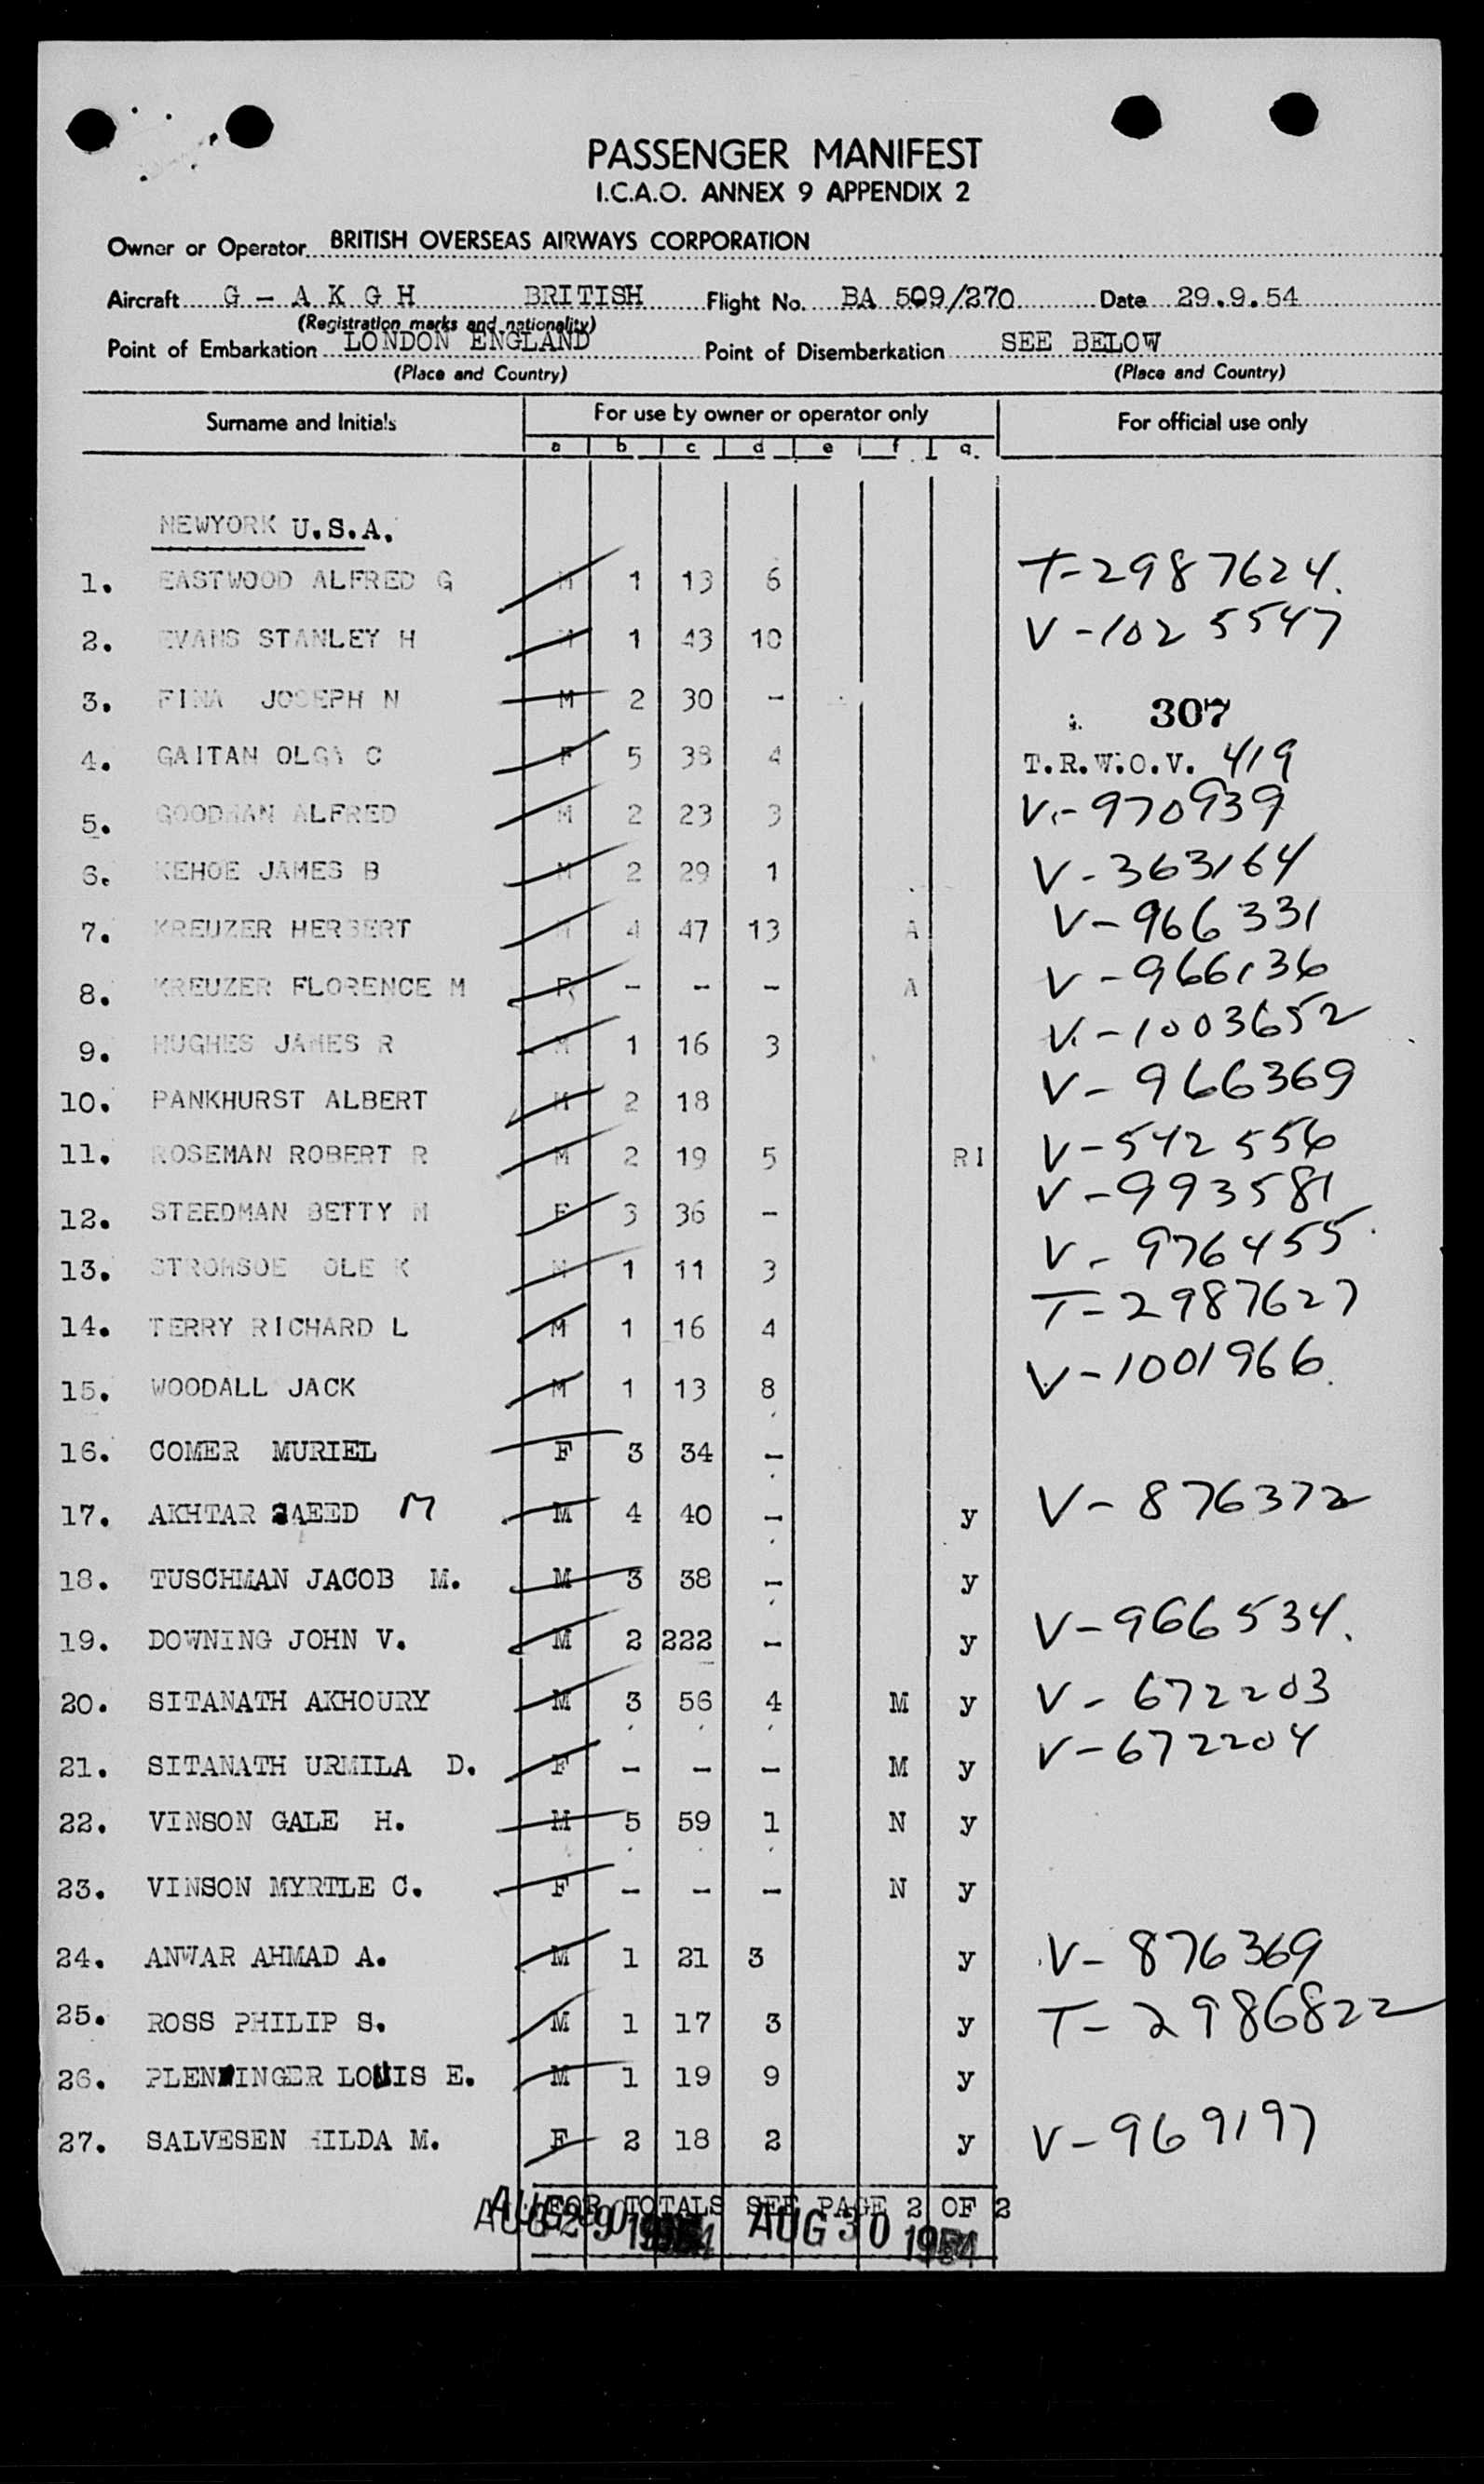 PASSENGER MANIFEST
I.C.A.O. ANNEX 9 APPENDIX 2
Owner or Operator BRITISH OVERSEAS AIRWAYS CORPORATION
Aircraft G - A K G H BRITISH Flight No. BA 509/270 Date 29.9.54
(Registration marks and nationality)
Point of Embarkation LONDON ENGLAND Point of Disembarkation SEE BELOW
(Place and Country) (Place and Country)
Surname and Initials For use by owner or operator only For official use only
a b c d e f g.
NEWYORK U.S.A.
1. EASTWOOD ALFRED G M 1 13 6 T-2987624.
2. EVANS STANLEY H M 1 43 10 V-1025547
3. FINA JOSEPH N M 2 30 - 307
4. GAITAN OLGA C F 5 38 4 T.R.W.O.V. 419
5. GOODMAN ALFRED M 2 23 3 V-970939
6. KEHOE JAMES B M 2 29 1 V-363164
7. KREUZER HERBERT M 4 47 13 A V-966331
8. KREUZER FLORENCE M F - - - A V-966136
9. HUGHES JAMES R M 1 16 3 V-1003652
10. PANKHURST ALBERT M 2 18 V-966369
11. ROSEMAN ROBERT R M 2 19 5 RI V-542556
12. STEEDMAN BETTY M F 3 36 - V-993581
13. STROMSOE OLE K M 1 11 3 V-976455
14. TERRY RICHARD L M 1 16 4 T-2987627
15. WOODALL JACK M 1 13 8 V-1001966
16. COMER MURIEL F 3 34 -
17. AKHTAR SAEED M M 4 40 - y V-876372
18. TUSCHMAN JACOB M. M 3 38 - y
19. DOWNING JOHN V. M 2 222 - y V-966534.
20. SITANATH AKHOURY M 3 56 4 M y V-672203
21. SITANATH URMILA D. F - - - M y V-672204
22. VINSON GALE H. M 5 59 1 N y
23. VINSON MYRTLE C. F - - - N y
24. ANWAR AHMAD A. M 1 21 3 y V-876369
25. ROSS PHILIP S. M 1 17 3 y T-2986822
26. PLENNINGER LOUIS E. M 1 19 9 y
27. SALVESEN HILDA M. F 2 18 2 y V-969197
FOR TOTALS SEE PAGE 2 OF 2
AUG 30 1954